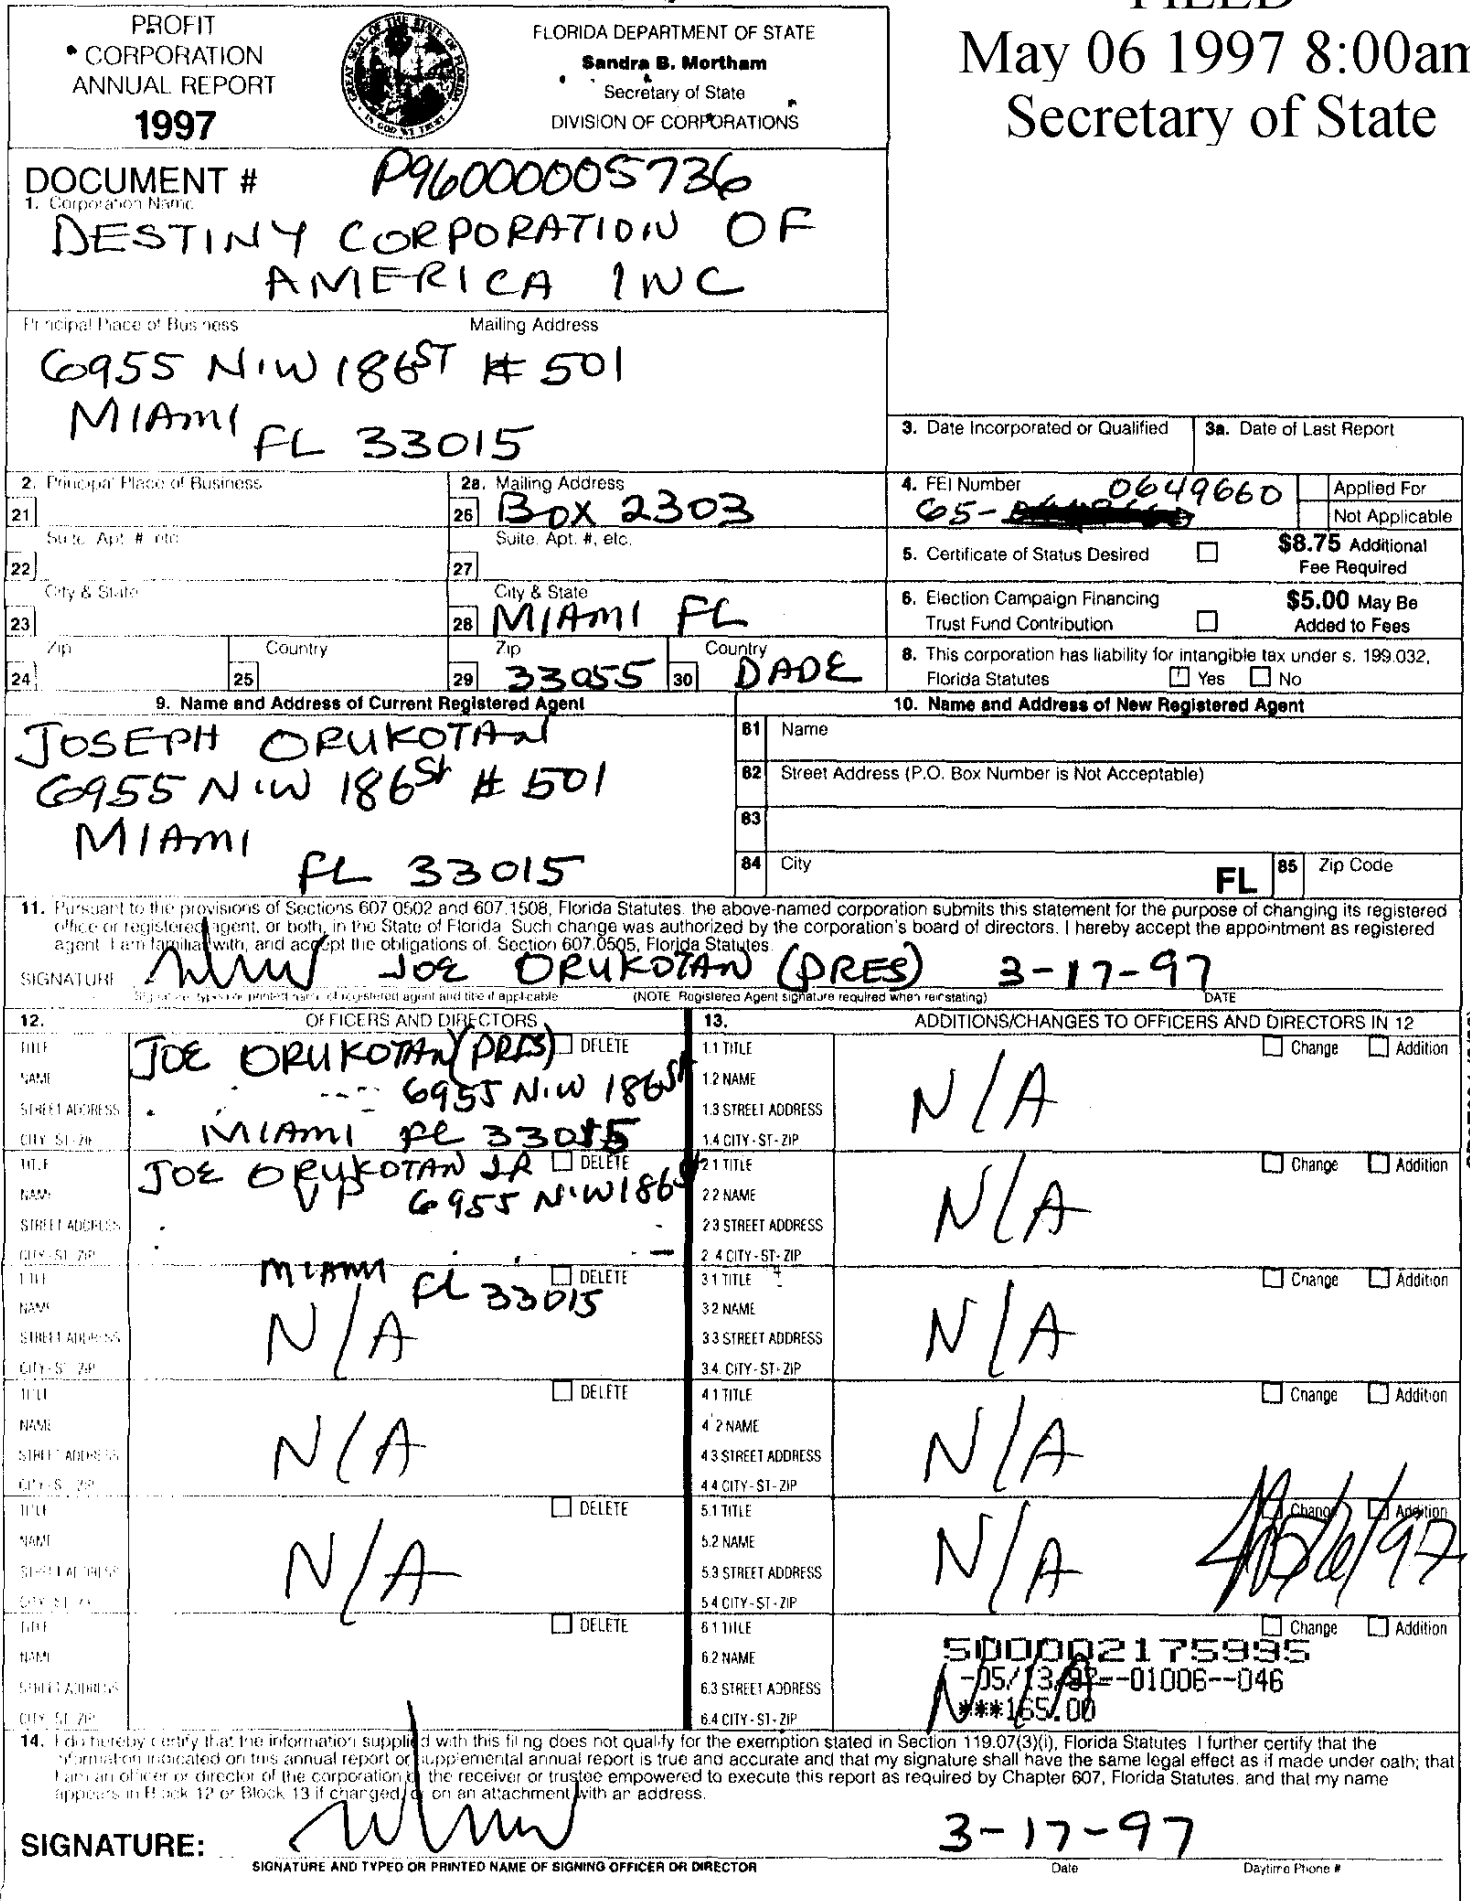 FILED
May 06 1997 8:00am
Secretary of State
PROFIT
CORPORATION
ANNUAL REPORT
1997
FLORIDA DEPARTMENT OF STATE
Sandra B. Mortham
Secretary of State
DIVISION OF CORPORATIONS
DOCUMENT # P96000005736
1. Corporation Name
DESTINY CORPORATION OF
AMERICA INC
Principal Place of Business Mailing Address
6955 N.W 186ST # 501
MIAMI
FL 33015
3. Date Incorporated or Qualified 3a. Date of Last Report
2. Principal Place of Business 2a. Mailing Address
21 26 BOX 2303
4. FEI Number 65- 0649660 Applied For
Not Applicable
Suite, Apt. #, etc. Suite, Apt. #, etc.
22 27
5. Certificate of Status Desired $8.75 Additional
Fee Required
City & State City & State
23 28 MIAMI FL
6. Election Campaign Financing
Trust Fund Contribution $5.00 May Be
Added to Fees
Zip Country Zip Country
24 25 29 33055 30 DADE
8. This corporation has liability for intangible tax under s. 199.032,
Florida Statutes Yes No
9. Name and Address of Current Registered Agent
JOSEPH ORUKOTAN
6955 N.W 186St # 501
MIAMI
FL 33015
10. Name and Address of New Registered Agent
81 Name
82 Street Address (P.O. Box Number is Not Acceptable)
83
84 City FL 85 Zip Code
11. Pursuant to the provisions of Sections 607.0502 and 607.1508, Florida Statutes, the above-named corporation submits this statement for the purpose of changing its registered
office or registered agent, or both, in the State of Florida. Such change was authorized by the corporation's board of directors. I hereby accept the appointment as registered
agent. I am familiar with, and accept the obligations of, Section 607.0505, Florida Statutes.
SIGNATURE JOE ORUKOTAN (PRES) 3-17-97
Signature, typed or printed name of registered agent and title if applicable (NOTE: Registered Agent signature required when reinstating) DATE
12. OFFICERS AND DIRECTORS
TITLE JOE ORUKOTAN (PRES) DELETE
NAME 6955 N.W 186St
STREET ADDRESS
CITY-ST-ZIP MIAMI FL 33015
TITLE JOE ORUKOTAN JR DELETE
NAME VP 6955 N.W 186St
STREET ADDRESS
CITY-ST-ZIP
MIAMI FL 33015
TITLE DELETE
NAME
STREET ADDRESS N/A
CITY-ST-ZIP
TITLE DELETE
NAME
STREET ADDRESS N/A
CITY-ST-ZIP
TITLE DELETE
NAME
STREET ADDRESS N/A
CITY-ST-ZIP
TITLE DELETE
NAME
STREET ADDRESS
CITY-ST-ZIP
13. ADDITIONS/CHANGES TO OFFICERS AND DIRECTORS IN 12
1.1 TITLE Change Addition
1.2 NAME
1.3 STREET ADDRESS N/A
1.4 CITY-ST-ZIP
2.1 TITLE Change Addition
2.2 NAME
2.3 STREET ADDRESS N/A
2.4 CITY-ST-ZIP
3.1 TITLE Change Addition
3.2 NAME
3.3 STREET ADDRESS N/A
3.4 CITY-ST-ZIP
4.1 TITLE Change Addition
4.2 NAME
4.3 STREET ADDRESS N/A
4.4 CITY-ST-ZIP
5.1 TITLE Change Addition
5.2 NAME
5.3 STREET ADDRESS N/A
5.4 CITY-ST-ZIP
6.1 TITLE Change Addition
6.2 NAME 500002175995
6.3 STREET ADDRESS -05/13/97--01006--046
6.4 CITY-ST-ZIP N/A ***165.00
14. I do hereby certify that the information supplied with this filing does not qualify for the exemption stated in Section 119.07(3)(i), Florida Statutes. I further certify that the
information indicated on this annual report or supplemental annual report is true and accurate and that my signature shall have the same legal effect as if made under oath; that
I am an officer or director of the corporation or the receiver or trustee empowered to execute this report as required by Chapter 607, Florida Statutes, and that my name
appears in Block 12 or Block 13 if changed, or on an attachment with an address.
SIGNATURE: 3-17-97
SIGNATURE AND TYPED OR PRINTED NAME OF SIGNING OFFICER OR DIRECTOR Date Daytime Phone #